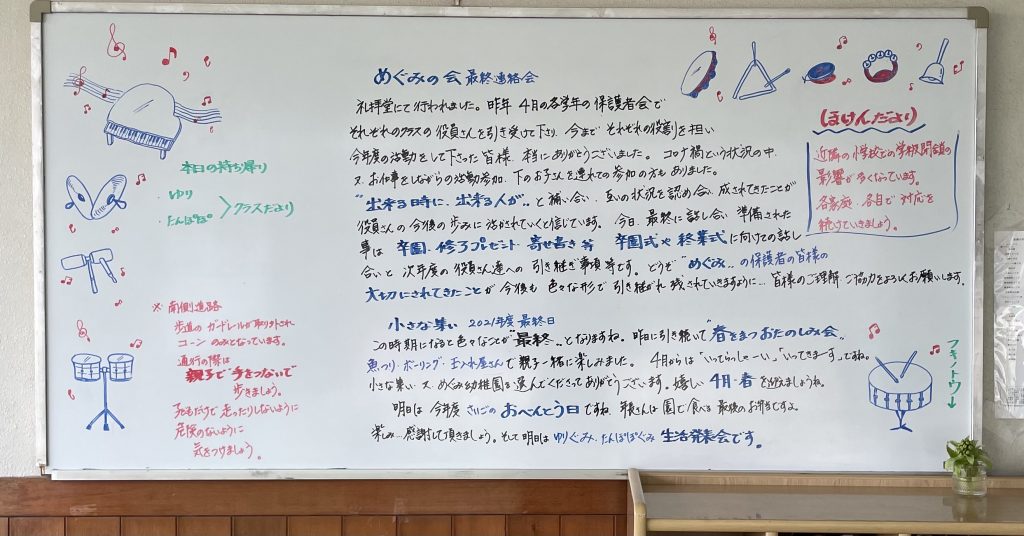 めぐみの会 最終連絡会
礼拝堂にて行われました。昨年 4月の各学年の保護者会で
それぞれのクラスの役員さんを引き受けて下り、今まで それぞれの役割を担い
今年度の活動をして下さった皆様 本当にありがとうございました。コロナ禍という状況の中、
又、お仕事をしながらの活動参加、下のお子さんを連れての参加の方もありました。
"出来る時に、出来る人が" と補い合い、互いの状況を認め合い 成されてきたことが
役員さんの今後の歩みに活かされていくと信じています。今日、最終に話し合い 準備された
事は 卒園・修了プレゼント・寄せ書き 等 卒園式や終業式に向けての話し
合いと 次年度の役員さん達への 引き継ぎ事項等です。どうぞ "めぐみ" の保護者の皆様の
大切にされてきたことが 今後も 色々な形で 引き継がれ 残されていきますように… 皆様のご理解・ご協力をよろしくお願いします。
小さな集い 2021年度 最終日
この時期になると色々なことが "最終" となりますね。昨日に引き続いて "春をまつおたのしみ会"
魚つり・ボーリング・玉入れ屋さんで 親子一緒に楽しみました。 4月からは "いってらっしゃーい" "いってきまーす" ですね。
小さな集い・又、めぐみ幼稚園を選んでくださってありがとうございます。嬉しい 4月・春 を迎えましょうね。
明日は 今年度 さいごの おべんとう日 ですね 年長さんは 園で食べる 最後のお弁当ですよ。
楽しみ… 感謝して頂きましょう。そして明日は ゆりぐみ・たんぽぽぐみ 生活発表会です。
本日の持ち帰り
・ゆり
・たんぽぽ
クラスだより
※ 南側道路
歩道の ガードレールが取り外され
コーン のみとなっています。
通行の際は
親子で 手をつないで
歩きましょう。
子どもだけで 走ったりしないように
危険のないように
気をつけましょう。
ほけんだより
近隣の小学校での学校閉鎖の
影響が多くなっています。
各家庭・各自で 対応を
続けていきましょう。
フキノトウ→